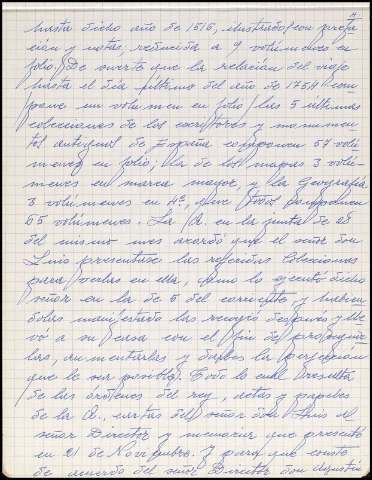 hasta dicho año de 1516, ilustrado con prefa-
ción y notas, reducida a 9 volúmenes en
folio. De suerte que la relación del viaje
hasta el día último del año de 1754 com-
pone un volumen en folio, las 5 últimas
colecciones de los escritores y monumen-
tos antiguos de España componen 57 volú-
menes en folio; la de los mapas 3 volú-
menes en marca mayor, y la Geografía
3 volúmenes en 4º, que todos componen
65 volúmenes. La A. en la junta de 28
del mismo mes acordó que el señor don
Luis presentase las referidas colecciones
para verlas en ella, como lo ejecutó dicho
señor en la de 5 del corriente, y habién-
dolas manifestado las recogió después y lle-
vó a su casa con el fin de proseguir-
las, aumentarlas y darles la perfección
que le sea posible. Todo lo cual resulta
de las órdenes del rey, actas y papeles
de la A., cartas del señor don Luis al
señor Director y memoria que presentó
en 21 de Noviembre. Y para que conste
de acuerdo del señor Director don Agustín